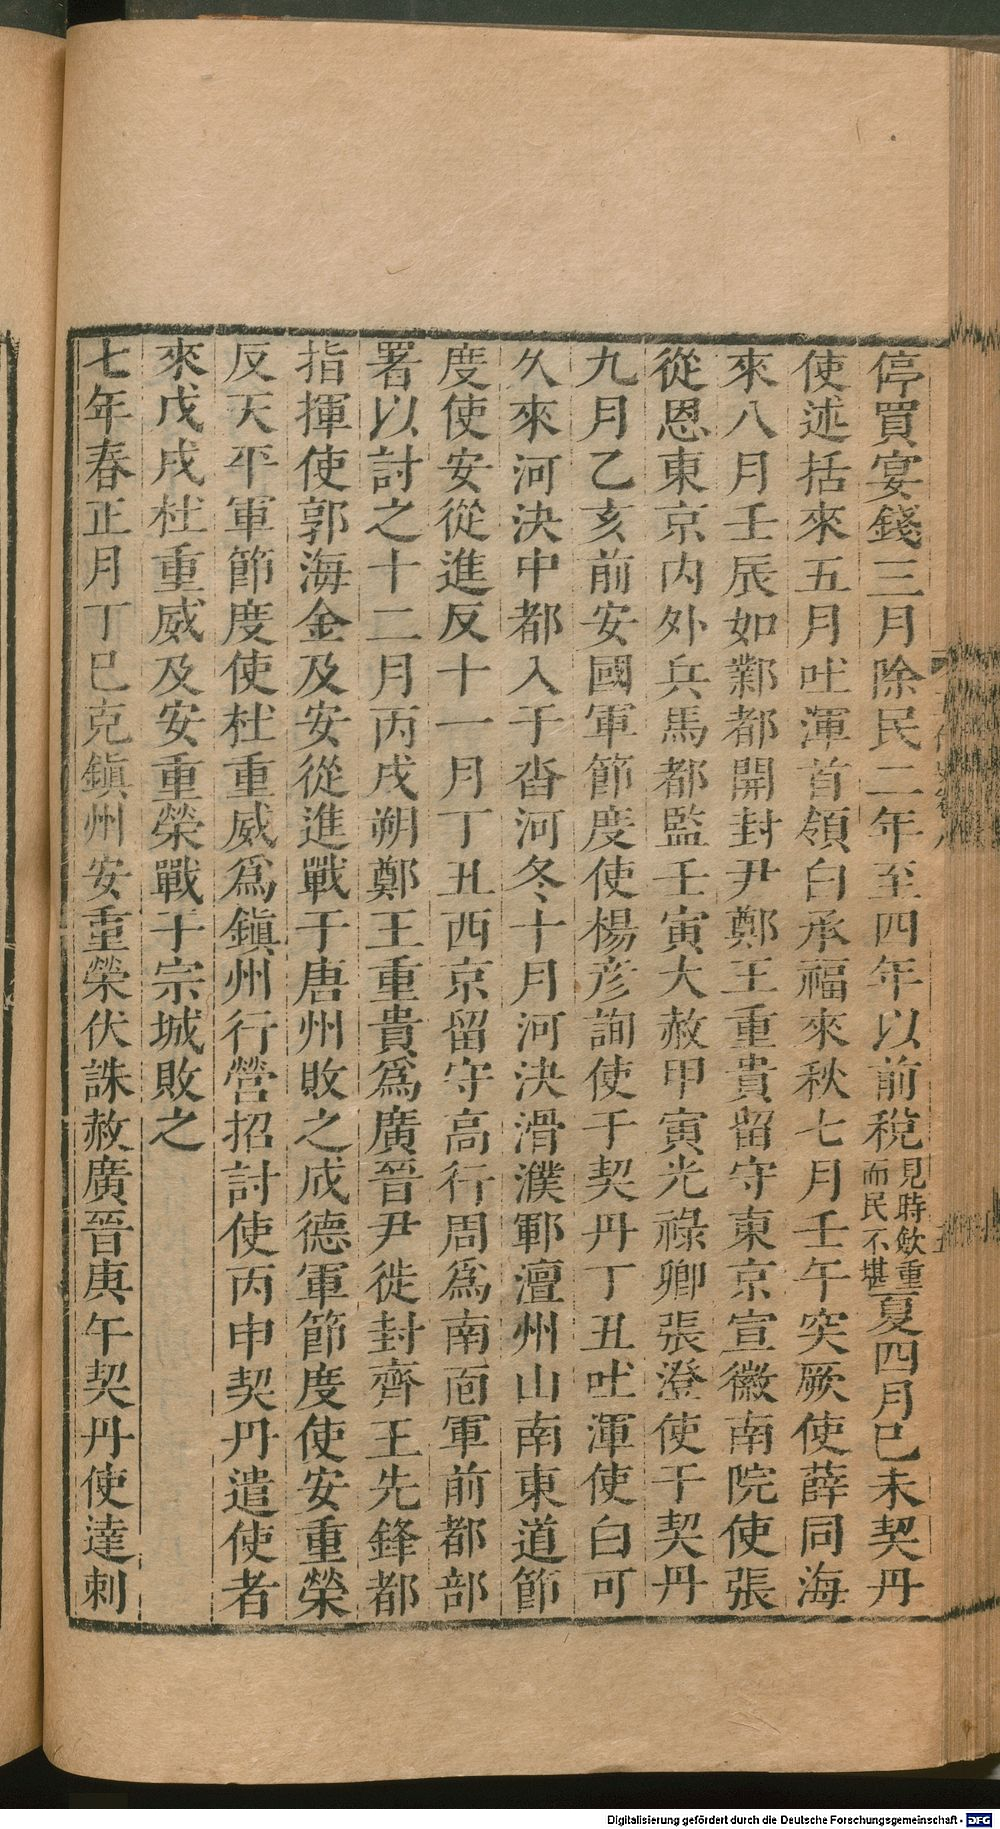 停買宴錢三月除民二年至四年以前稅見時斂重而民不堪夏四月己未契丹
使述括來五月吐渾首領白承福來秋七月壬午突厥使薛同海
來八月壬辰如鄴都開封尹鄭王重貴留守東京宣徽南院使張
從恩東京內外兵馬都監壬寅大赦甲寅光祿卿張澄使于契丹
九月乙亥前安國軍節度使楊彥詢使于契丹丁丑吐渾使白可
久來河決中都入于沓河冬十月河決滑濮鄆澶州山南東道節
度使安從進反十一月丁丑西京留守高行周爲南面軍前都部
署以討之十二月丙戌朔鄭王重貴爲廣晉尹徙封齊王先鋒都
指揮使郭海金及安從進戰于唐州敗之成德軍節度使安重榮
反天平軍節度使杜重威爲鎭州行營招討使丙申契丹遣使者
來戊戌杜重威及安重榮戰于宗城敗之
七年春正月丁巳克鎭州安重榮伏誅赦廣晉庚午契丹使達剌
Digitalisierung gefördert durch die Deutsche Forschungsgemeinschaft - DFG